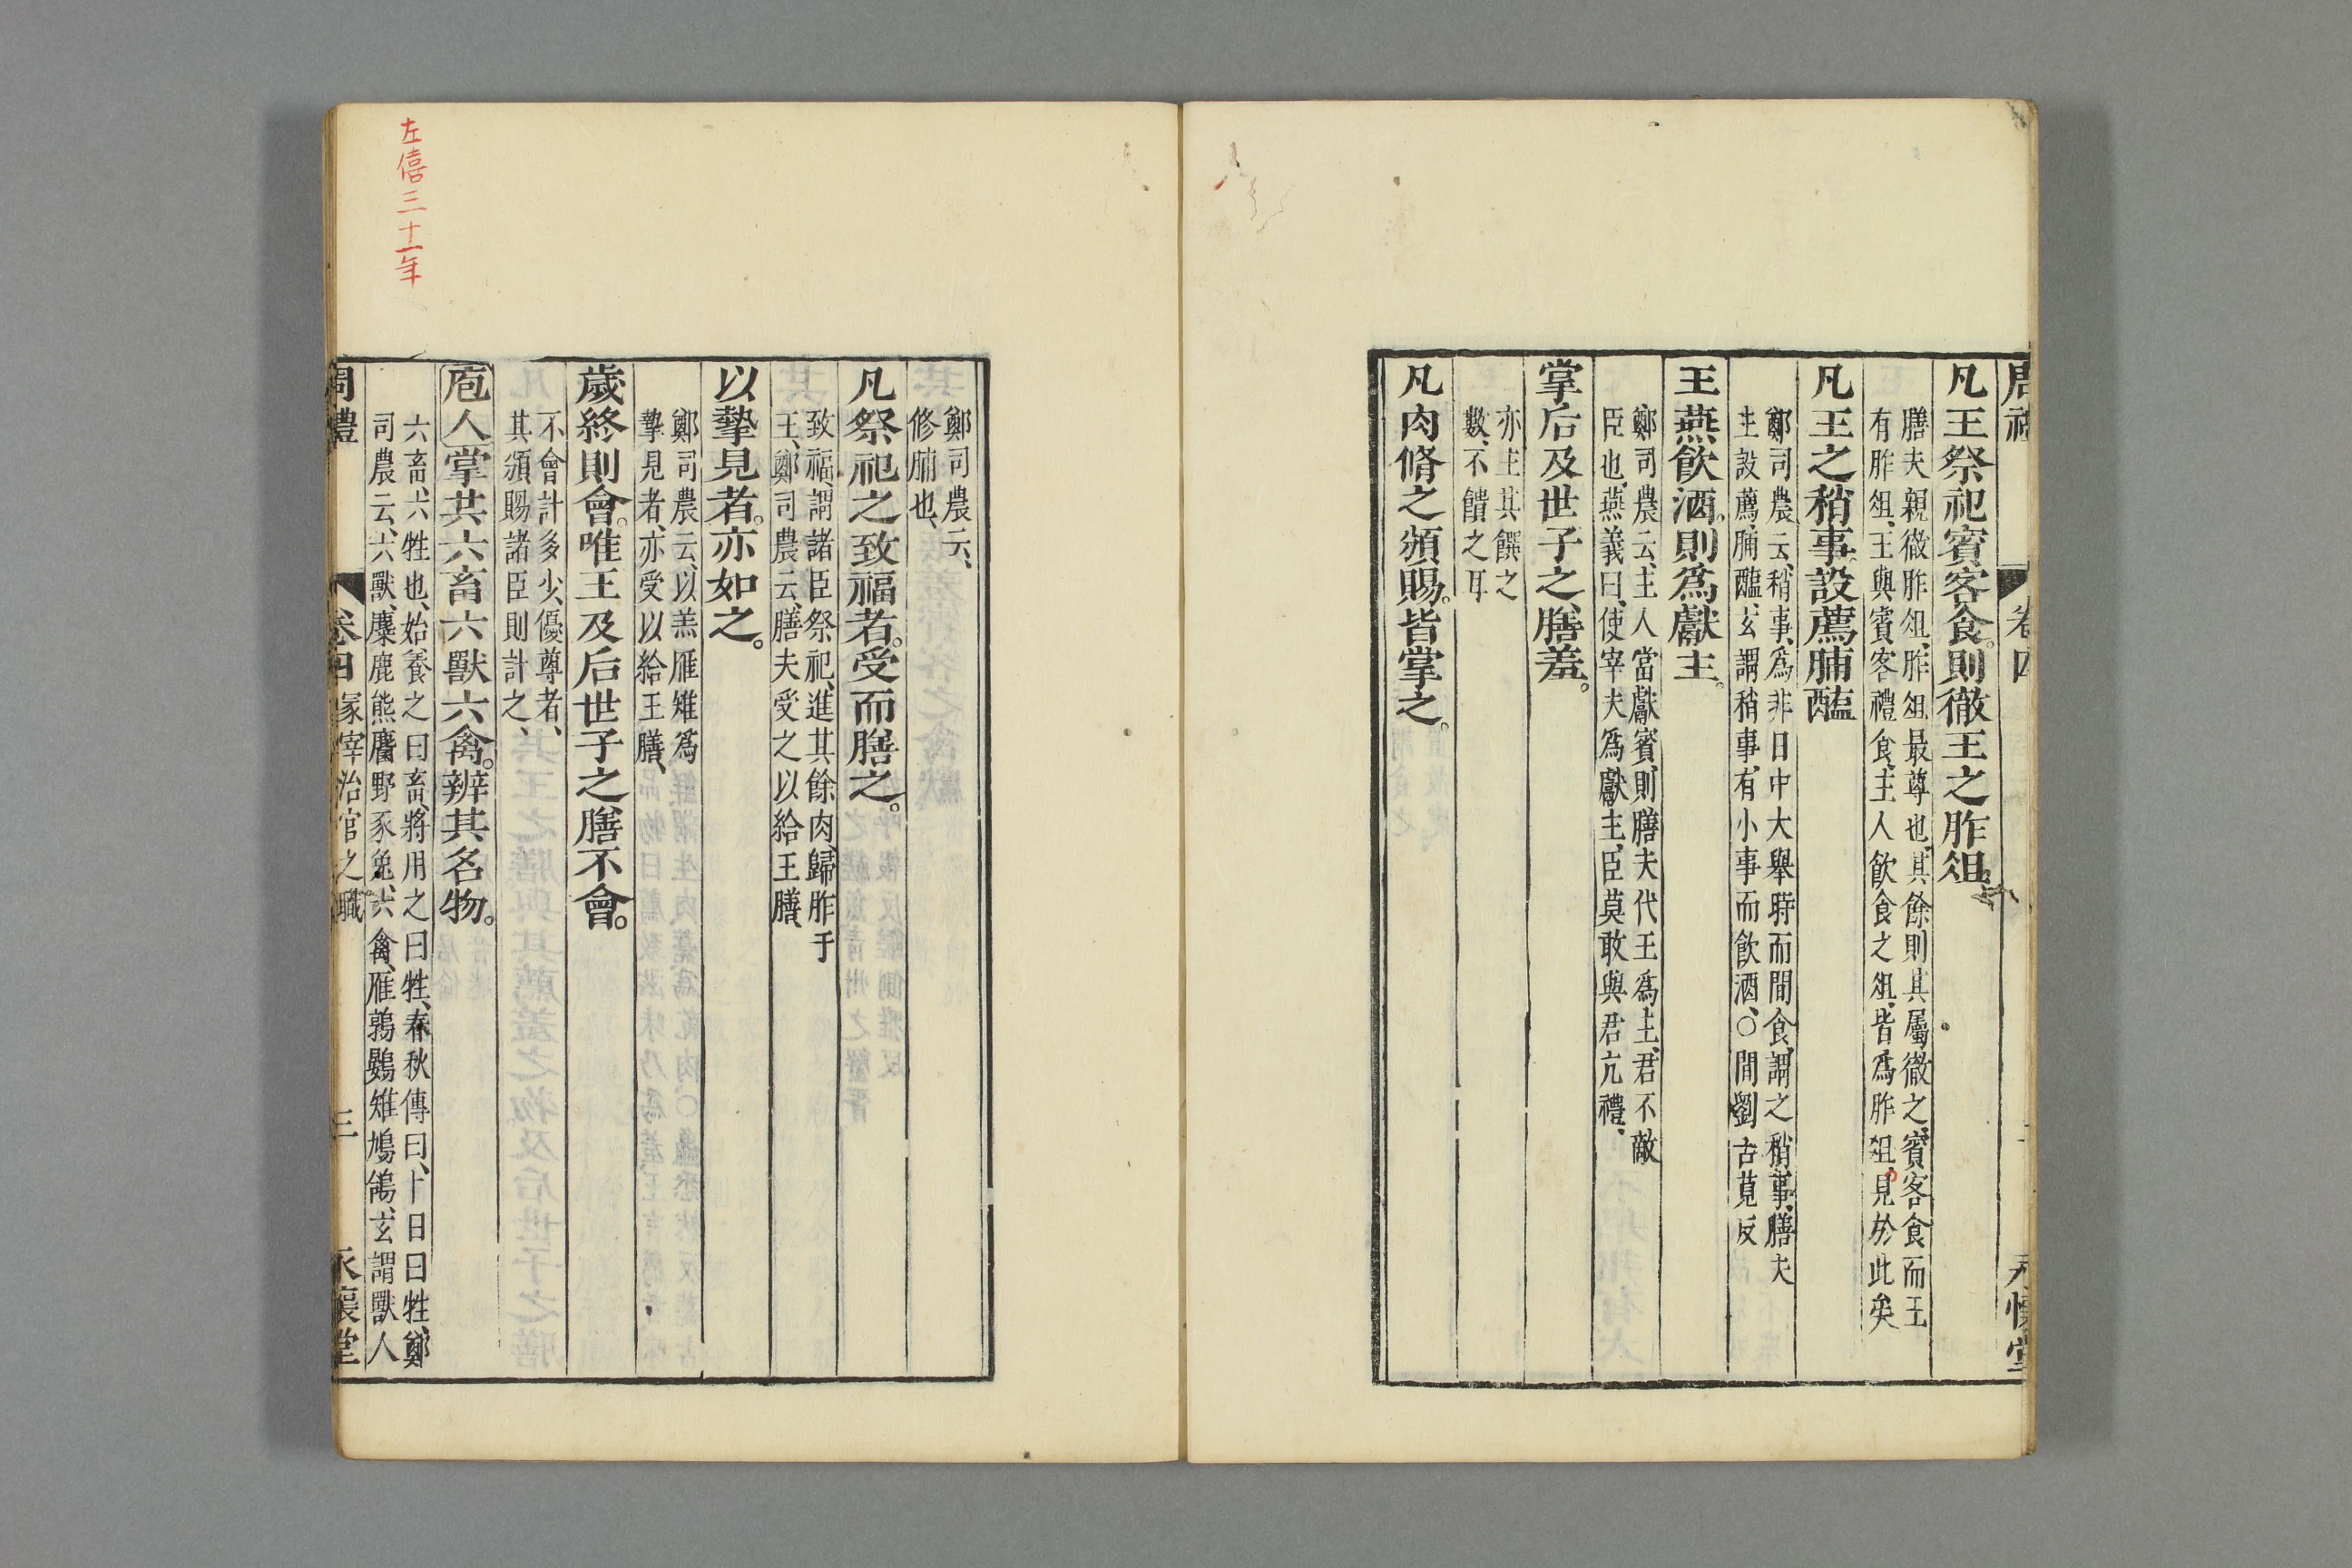 周禮
卷四
永懷堂
凡王祭祀賓客食。則徹王之胙俎。
膳夫親徹胙俎、胙俎最尊也、其餘則其屬徹之、賓客食而王
有胙俎、王與賓客禮食、主人飲食之俎、皆爲胙俎、見於此矣
凡王之稍事。設薦脯醢
鄭司農云、稍事、爲非日中大舉時而間食、謂之稍事、膳夫
主設薦脯醢、玄謂稍事、有小事而飲酒、○間劉古莧反
王燕飲酒。則爲獻主。
鄭司農云、主人當獻賓、則膳夫代王爲主、君不敵
臣也、燕義曰、使宰夫爲獻主、臣莫敢與君亢禮、
掌后及世子之膳羞。
亦主其饌之
數、不饋之耳
凡肉脩之頒賜。皆掌之。
鄭司農云、
修脯也、
凡祭祀之致福者。受而膳之。
致福、謂諸臣祭祀、進其餘肉、歸胙于
王、鄭司農云、膳夫受之以給王膳、
以摯見者。亦如之。
鄭司農云、以羔雁雉爲
摯見者、亦受以給王膳、
歲終則會。唯王及后世子之膳不會。
不會計多少、優尊者、
其頒賜諸臣則計之、
庖人掌共六畜六獸六禽。辨其名物。
六畜、六牲也、始養之曰畜、將用之曰牲、春秋傳曰、卜日曰牲、鄭
司農云、六獸、麋鹿熊麕野豕兔、六禽、雁鶉鷃雉鳩鴿、玄謂獸人
周禮
卷四
冢宰治官之職
三
永懷堂
左僖三十一年